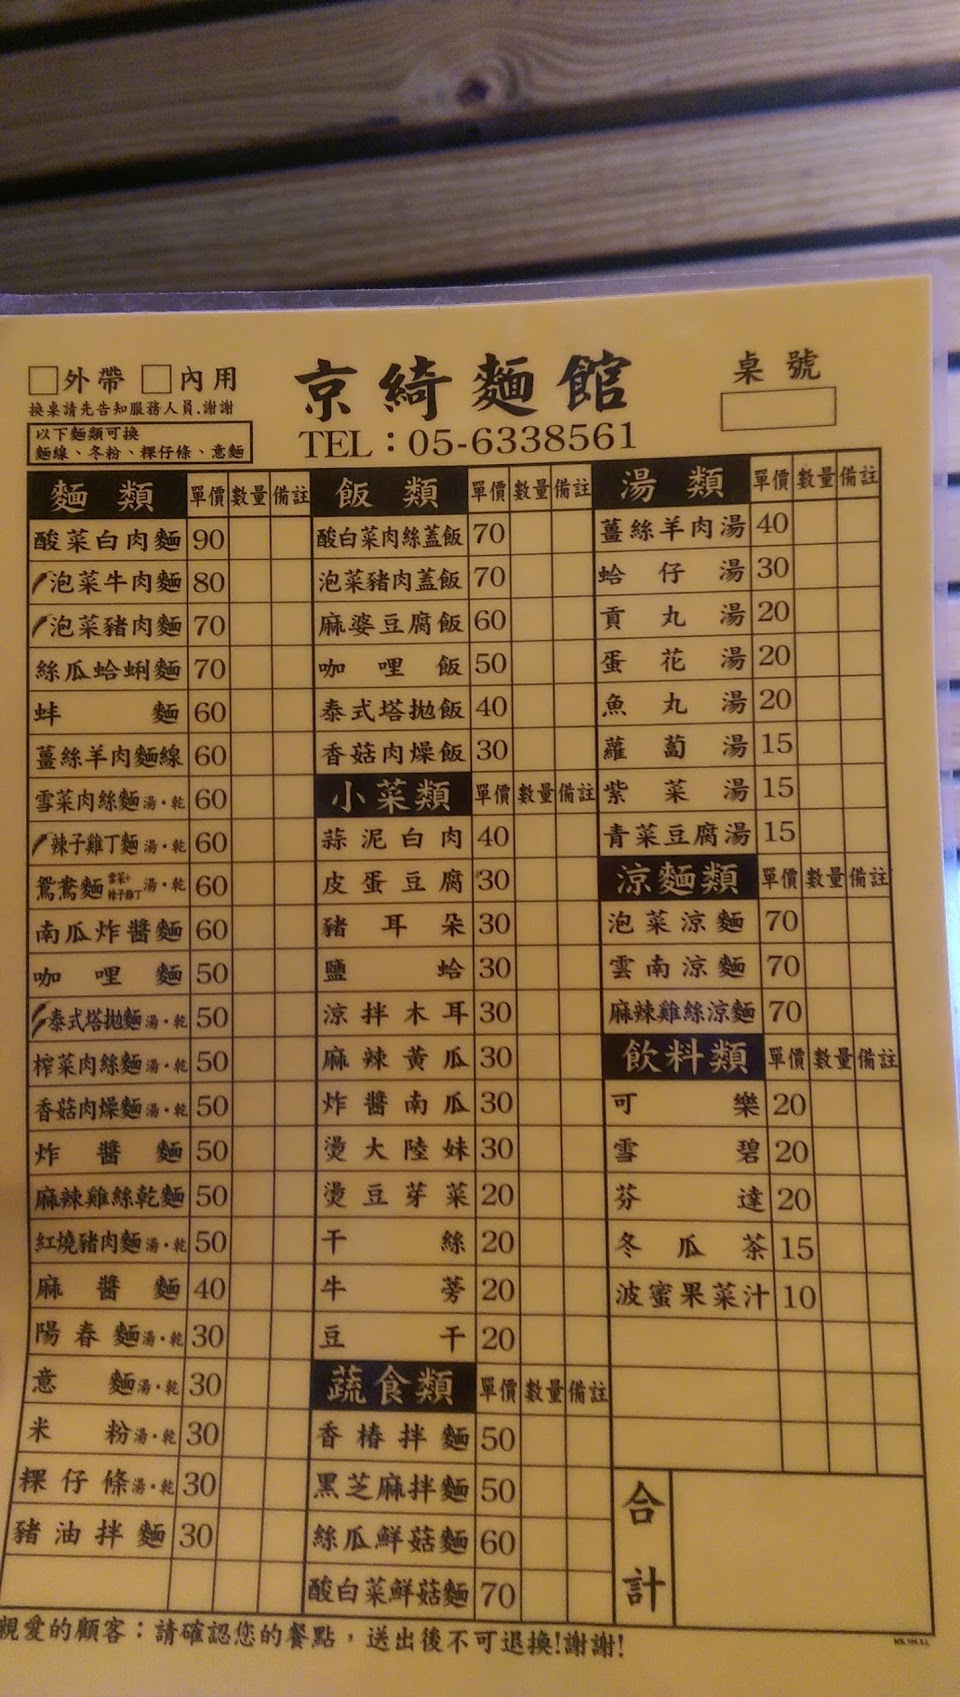 外帶 內用
換桌請先告知服務人員.謝謝
以下麵類可換
麵線、冬粉、粿仔條、意麵
京綺麵館
TEL：05-6338561
桌號
麵類 單價 數量 備註
酸菜白肉麵 90
泡菜牛肉麵 80
泡菜豬肉麵 70
絲瓜蛤蜊麵 70
蚌麵 60
薑絲羊肉麵線 60
雪菜肉絲麵 湯·乾 60
辣子雞丁麵 湯·乾 60
鴛鴦麵 雪菜+辣子雞丁 湯·乾 60
南瓜炸醬麵 60
咖哩麵 50
泰式塔拋麵 湯·乾 50
榨菜肉絲麵 湯·乾 50
香菇肉燥麵 湯·乾 50
炸醬麵 50
麻辣雞絲乾麵 50
紅燒豬肉麵 湯·乾 50
麻醬麵 40
陽春麵 湯·乾 30
意麵 湯·乾 30
米粉 湯·乾 30
粿仔條 湯·乾 30
豬油拌麵 30
飯類 單價 數量 備註
酸白菜肉絲蓋飯 70
泡菜豬肉蓋飯 70
麻婆豆腐飯 60
咖哩飯 50
泰式塔拋飯 40
香菇肉燥飯 30
小菜類 單價 數量 備註
蒜泥白肉 40
皮蛋豆腐 30
豬耳朵 30
鹽蛤 30
涼拌木耳 30
麻辣黃瓜 30
炸醬南瓜 30
燙大陸妹 30
燙豆芽菜 20
干絲 20
牛蒡 20
豆干 20
蔬食類 單價 數量 備註
香椿拌麵 50
黑芝麻拌麵 50
絲瓜鮮菇麵 60
酸白菜鮮菇麵 70
湯類 單價 數量 備註
薑絲羊肉湯 40
蛤仔湯 30
貢丸湯 20
蛋花湯 20
魚丸湯 20
蘿蔔湯 15
紫菜湯 15
青菜豆腐湯 15
涼麵類 單價 數量 備註
泡菜涼麵 70
雲南涼麵 70
麻辣雞絲涼麵 70
飲料類 單價 數量 備註
可樂 20
雪碧 20
芬達 20
冬瓜茶 15
波蜜果菜汁 10
合計
親愛的顧客：請確認您的餐點，送出後不可退換!謝謝!